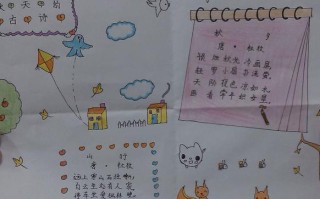 天的
古诗
秋夕
唐·杜牧
银烛秋光冷画屏
轻罗小扇扑流萤
天阶夜色凉如水
看牵牛织女星
山行
唐·杜牧
远上寒山石径斜,
白云生处有人家
停车坐爱枫林晚